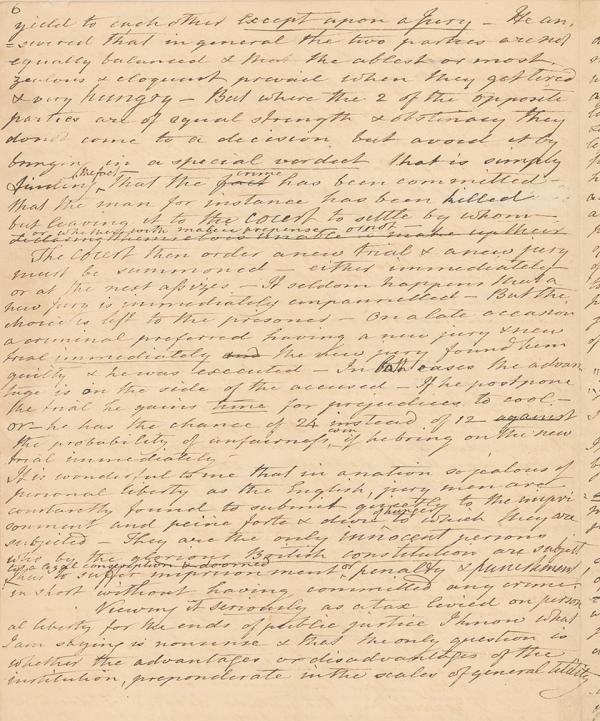 6
yield to each other except upon a Jury – He an,
=swered that in general the two parties are not
equally balanced & that the ablest or most
zealous & eloquent prevail when they get tired
& very hungry – But where the 2 of the opposite
parties are of equal strength & obstinacy they
donot come to a decision but avoid it by
bringing in a special verdict that is simply
finding the fact, that the fact crime has been committed –
that the man for instance has been killed
but leaving it to the court to settle by whom
& or whether with malice prepense or not
declaring themselves unable to make up their
The court then order a new trial & a new jury
must be summoned – either immediately
or at the next assizes – It seldom happens that a
new jury is immediately empannelled – But the
choice is left to the prisoner – On a late occasion
a criminal preferred having a new jury & new
trial immediately and the new jury found him
guilty & he was executed – In both cases the advan
tage is on the side of the accused – If he postpone
the trial he gains time for prejudices to cool –
or – he has the chance of 24 instead of 12 against
the probability of unfairness, if he bring on the new
trial immediately –
It is wonderful to me that in a nation so jealous of
personal liberty as the English, jury men are
constantly found to submit quietly to the impri
sonment and peine forte & dure to which they are
subjected – They are the only innocent persons
who by the glorious British constitution are subject
by a legal conscription & doomed
thus to suffer imprisonment or penalty & punishment
in short without having committed any crime.
Viewing it seriously as a tax levied on person
al liberty for the ends of public justice I know what
I am saying is nonsense & that the only question is
whether the advantages or disadvantages of the
institution, preponderate in the scales of general utility